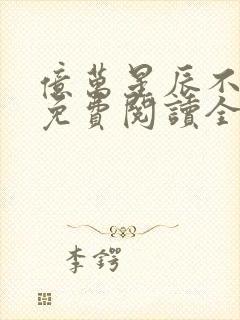 億萬星辰不
免費閱讀全
李鍔